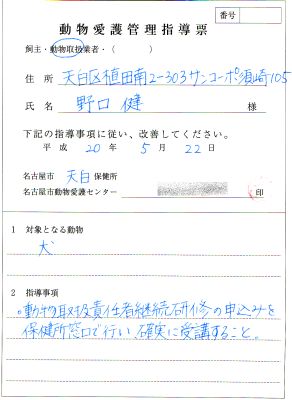 番号
動物愛護管理指導票
飼主・動物取扱業者・（　　　）
住所 天白区植田南2-303サンコーポ須崎105
氏名 野口 健 様
下記の指導事項に従い、改善してください。
平成 20 年 5 月 22 日
名古屋市 天白 保健所
名古屋市動物愛護センター 印
1 対象となる動物
犬
2 指導事項
。動物取扱責任者継続研修の申込みを
保健所窓口で行い、確実に受講すること。